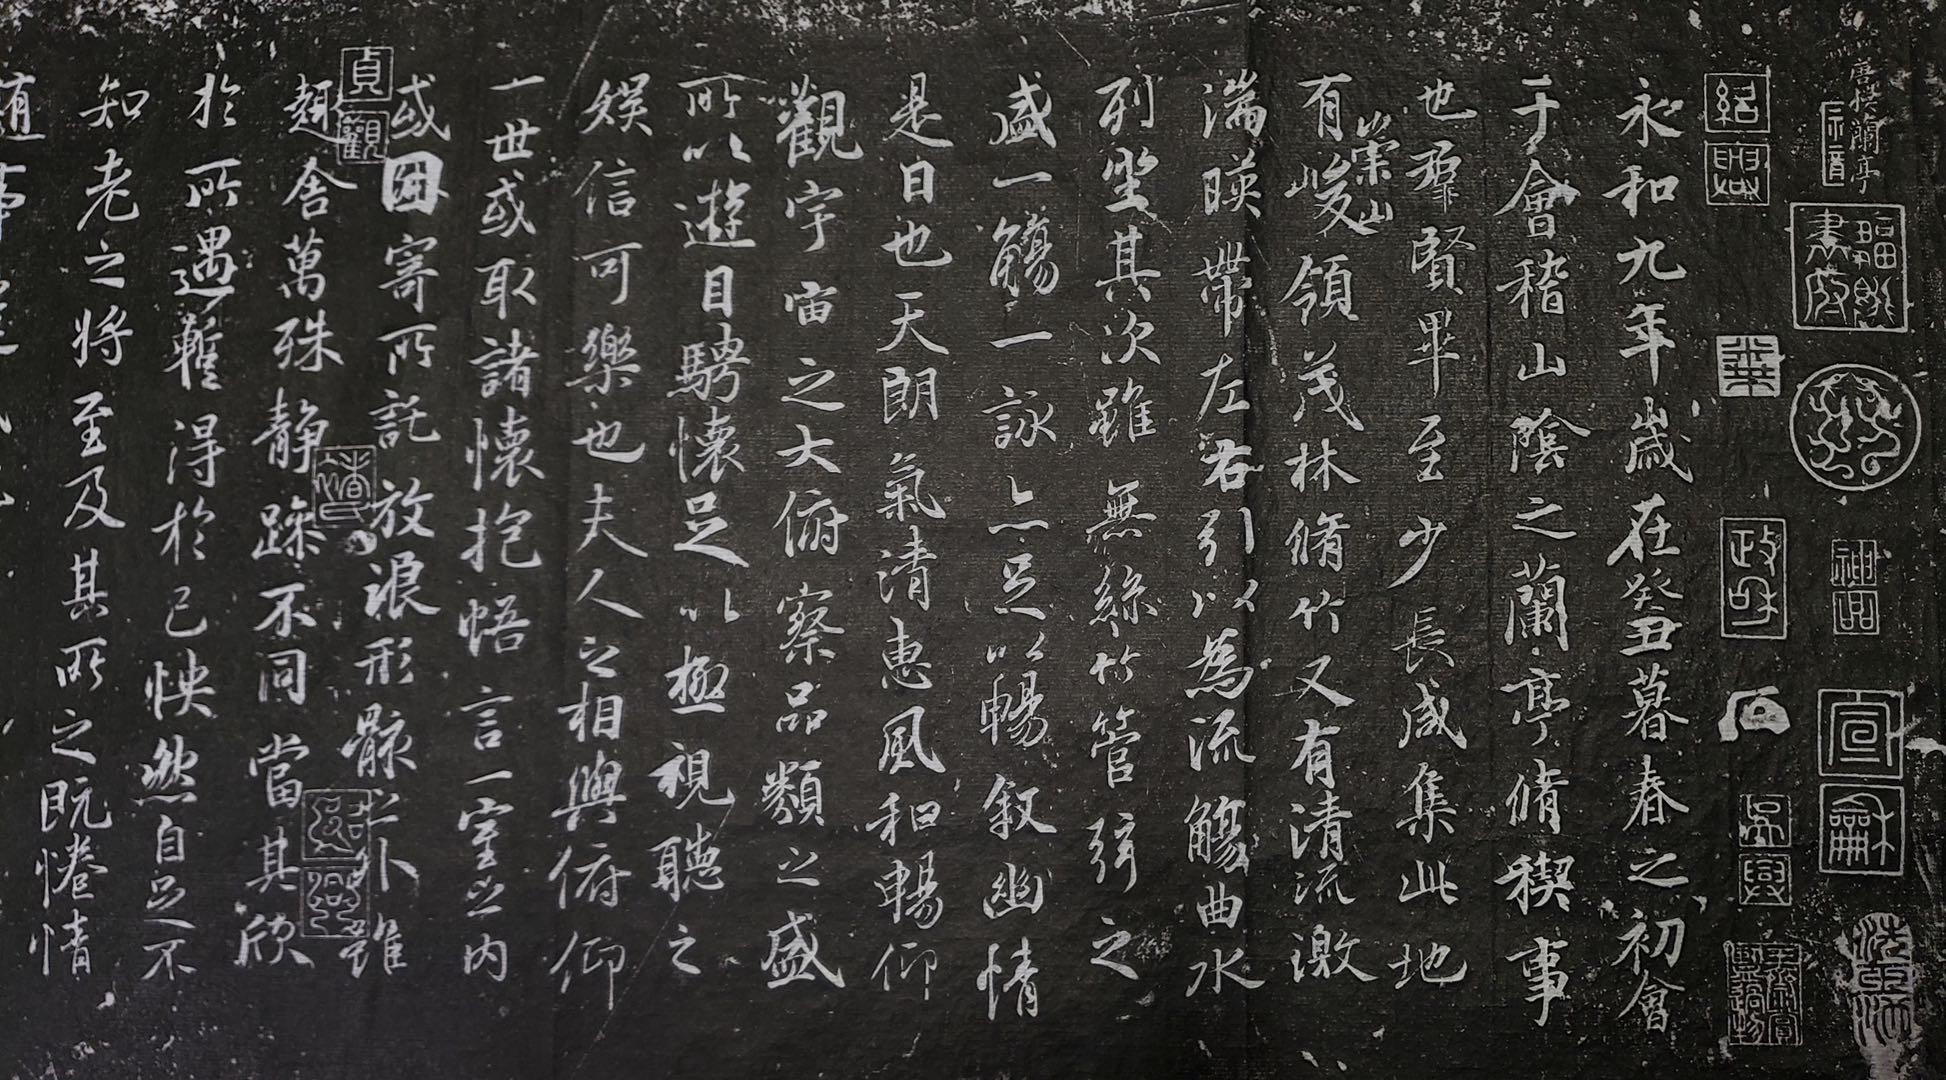 唐橅蘭亭
紹興
神品
政和
宣龢
吳興
永和九年歲在癸丑暮春之初會
于會稽山陰之蘭亭脩稧事
也羣賢畢至少長咸集此地
有崇山峻領茂林脩竹又有清流激
湍暎帶左右引以為流觴曲水
列坐其次雖無絲竹管弦之
盛一觴一詠亦足以暢敘幽情
是日也天朗氣清惠風和暢仰
觀宇宙之大俯察品類之盛
所以遊目騁懷足以極視聽之
娛信可樂也夫人之相與俯仰
一世或取諸懷抱悟言一室之內
或因寄所託放浪形骸之外雖
貞觀
趣舍萬殊靜躁不同當其欣
於所遇暫得於己怏然自足不
知老之將至及其所之既惓情
隨事遷